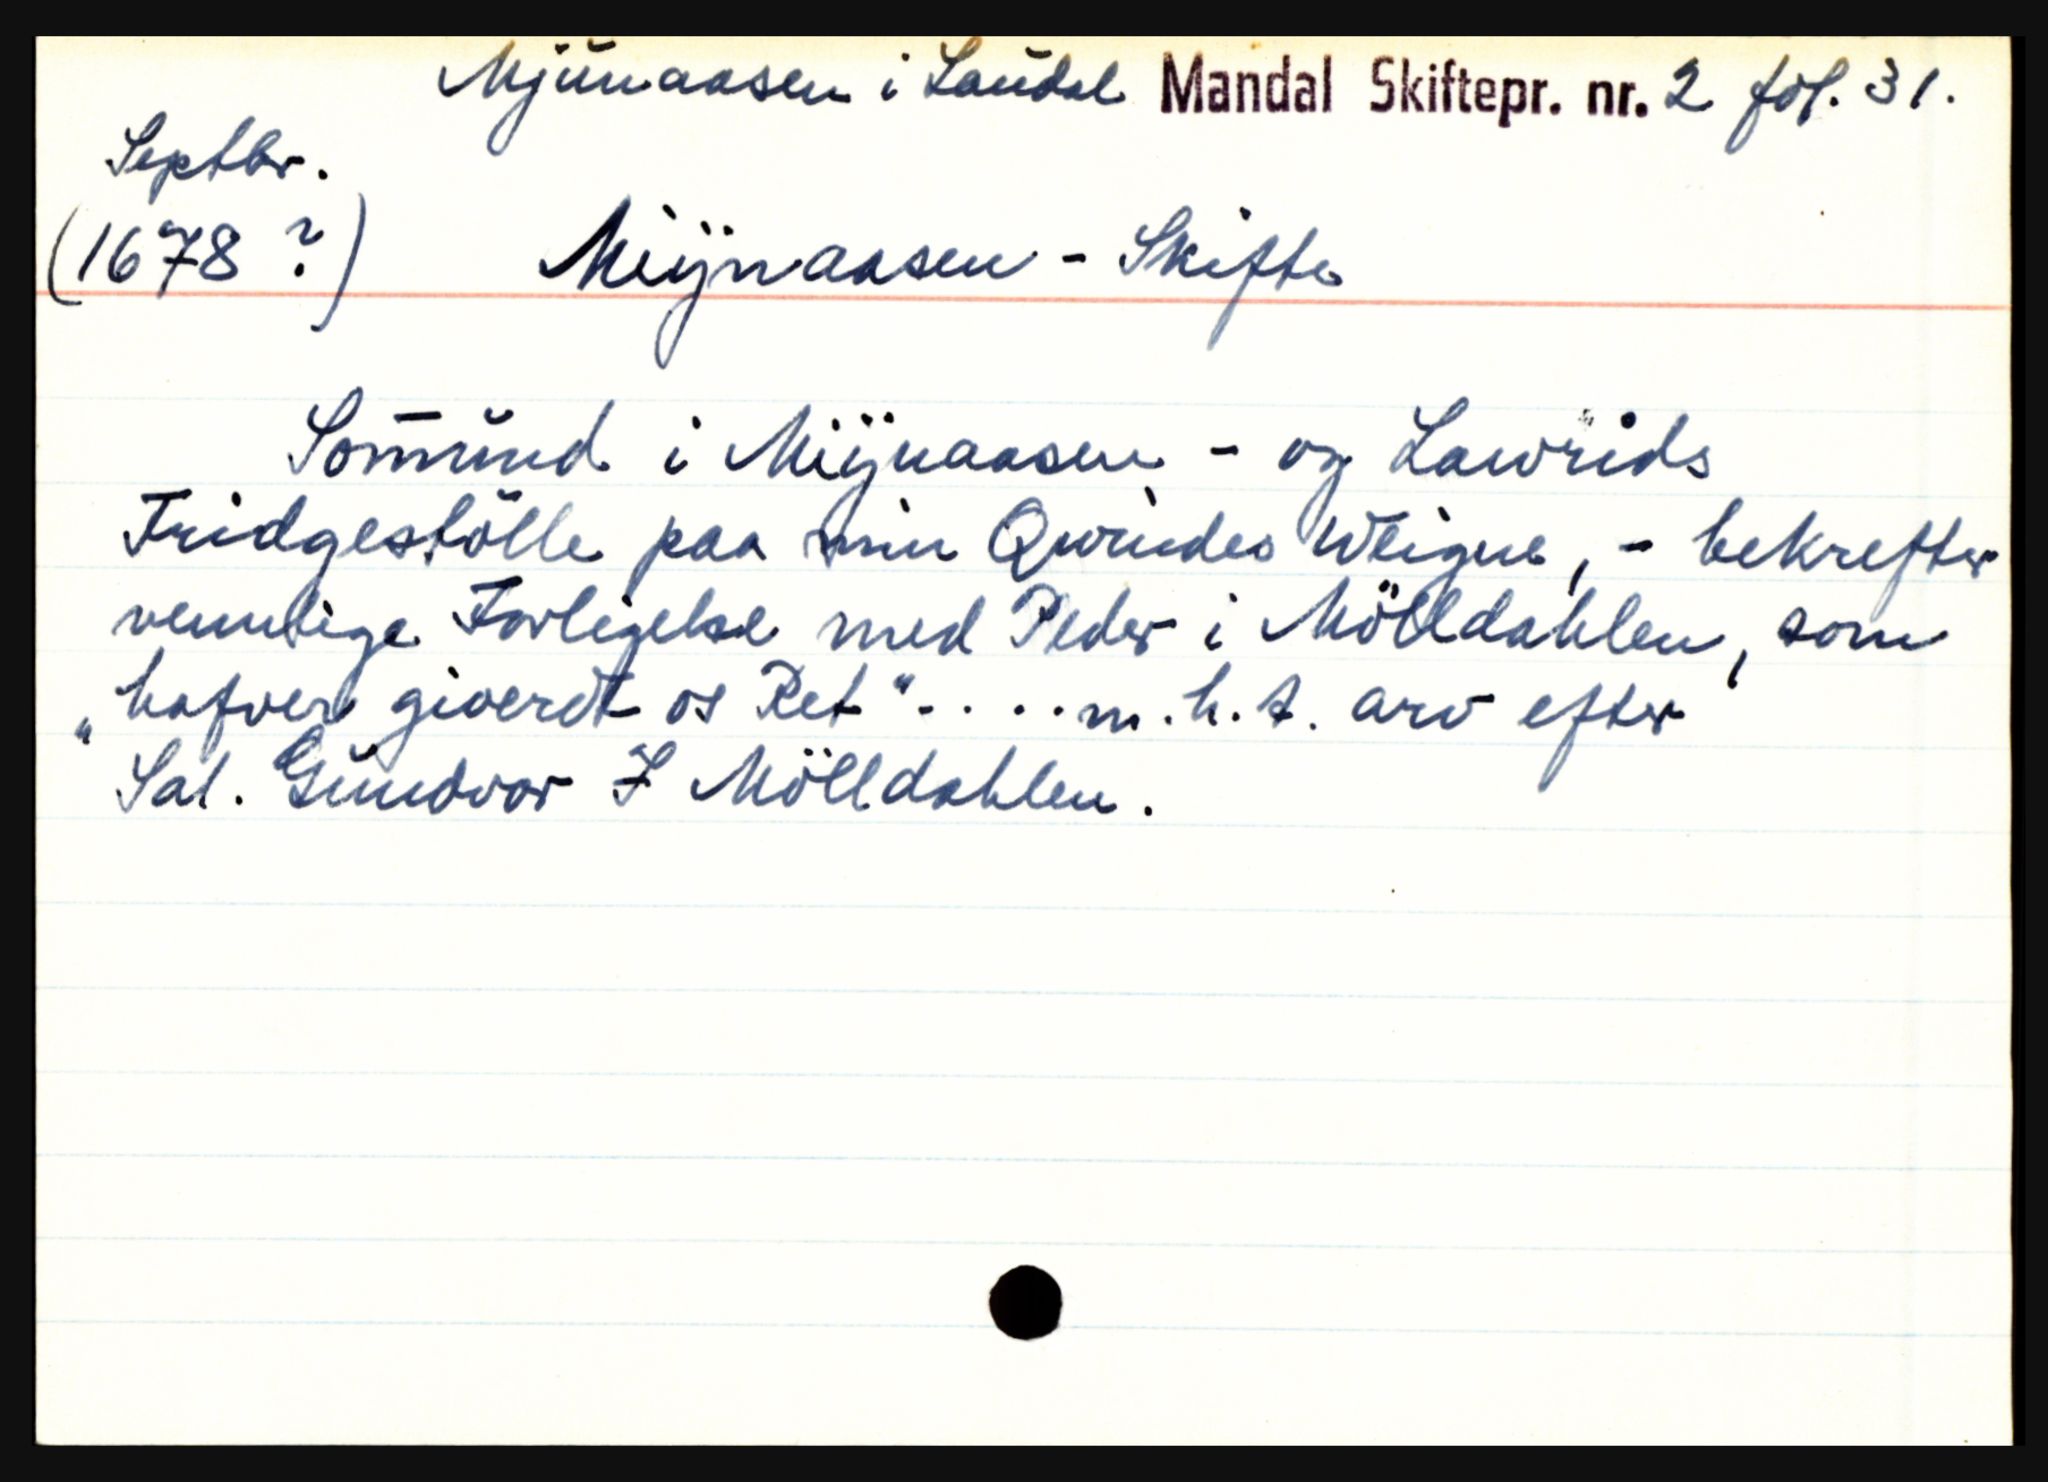 Mjunaasen i Laudal Mandal Skiftepr. nr. 2 fol. 31.
Septbr.
(1678 ?) Meijnaasen - Skifte
Som̄und i Meijnaasen - og Lawrids
Fridgestölle paa min Qwindes Weigne, - bekrefter
venndige Forligelse med Peder i Mölldahlen, som
"hafver giverdt os Ret" .... m.h.t. arv efter
"Sal. Gundvor I Mölldahlen.